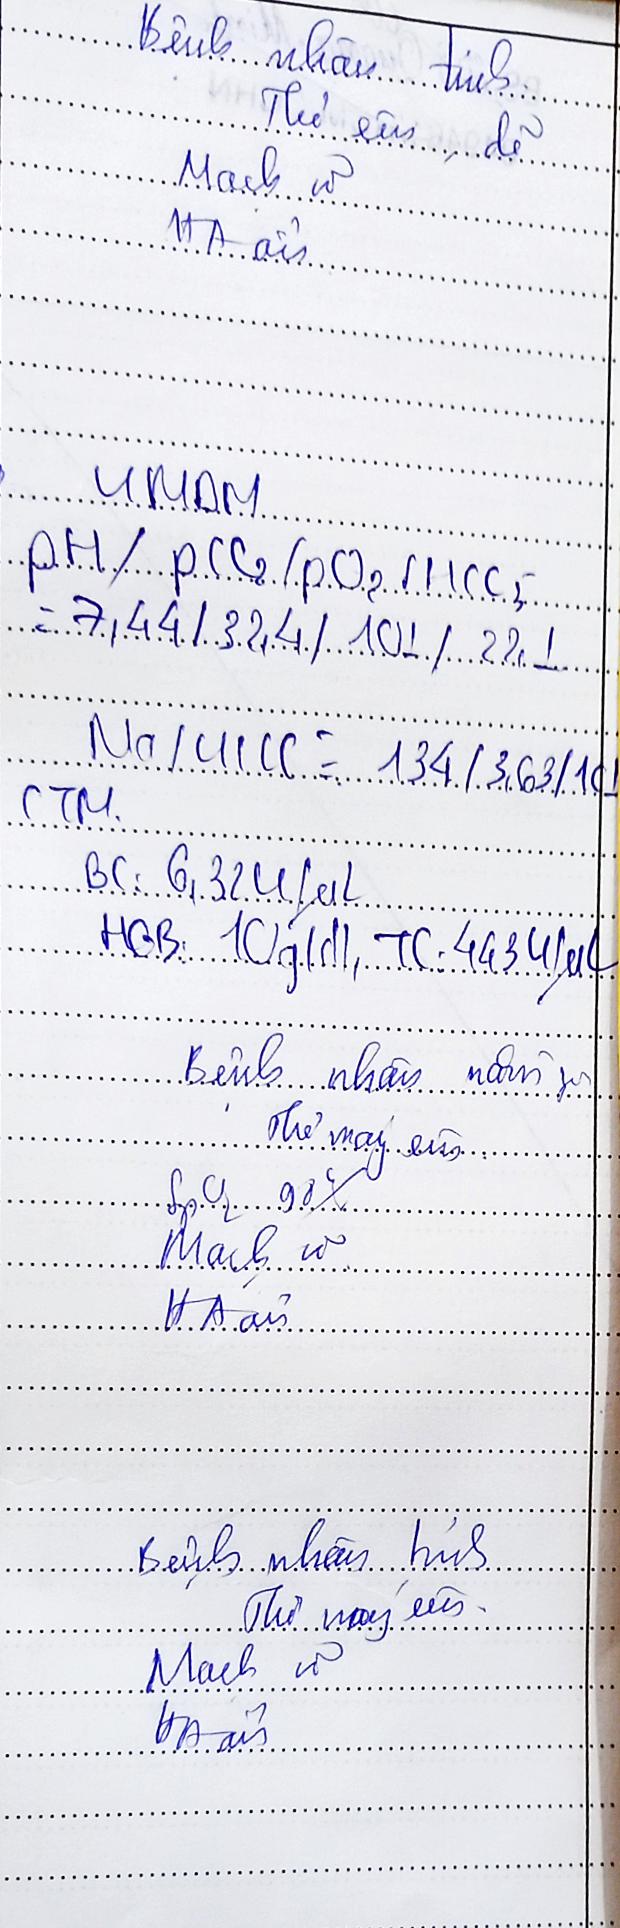 Bệnh nhân tỉnh.
Thở êm, dễ
Mạch rõ
HA ổn
KMĐM
pH/ pCO2/pO2/HCO3-
= 7,44/32,4/ 101/ 22,1
Na/K/Cl = 134/3,63/101
CTM.
BC: 6,32 K/µL
HGB: 10g/dl, TC: 443 K/µL
Bệnh nhân nằm
Thở máy êm.
SpO2 98%
Mạch rõ
HA ổn
Bệnh nhân tỉnh
Thở máy êm.
Mạch rõ
HA ổn